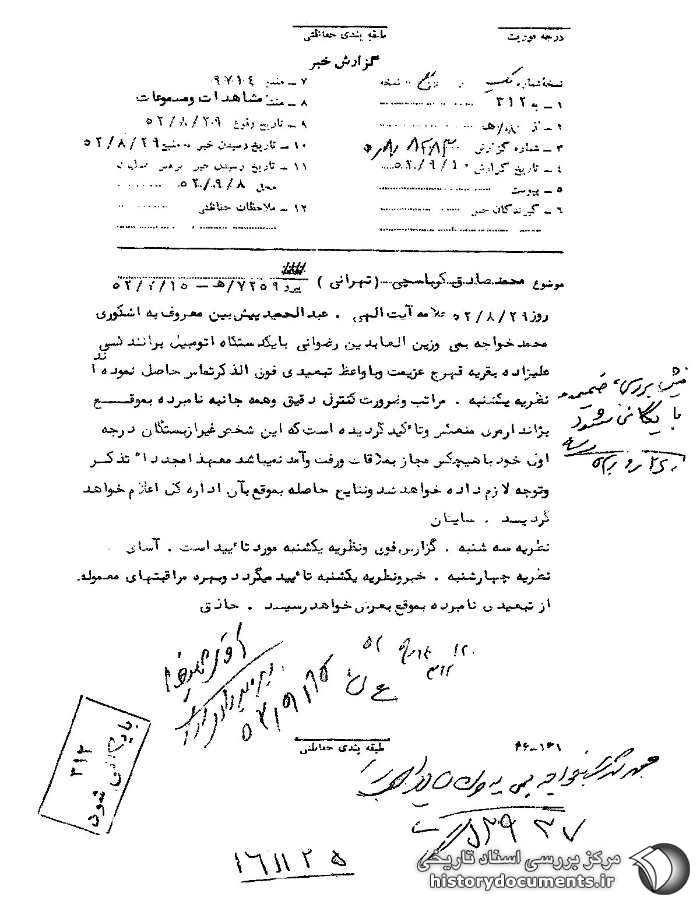 درجه فوریت
طبقه بندی حفاظتی
گزارش خبر
نسخه شماره یک از پنج نسخه
۱ ــ به ۳۱۲
۲ ــ از ۸۰/هـ
۳ ــ شماره گزارش
۴ ــ تاریخ گزارش ۵۲/۹/۱۰
۵ ــ پیوست
۶ ــ گیرندگان خبر
۷ ــ منبع ۹۷۱۴
۸ ــ منشا مشاهدات و مسموعات
۹ ــ تاریخ وقوع ۵۲/۸/۲۹
۱۰ ــ تاریخ رسیدن خبر به منبع ۵۲/۸/۲۹
۱۱ ــ تاریخ رسیدن خبر برهبر عملیات
محل ۵۲/۹/۸
۱۲ ــ ملاحظات حفاظتی
موضوع محمدصادق کرباسچی (تهرانی)
روز ۵۲/۸/۲۹ علامه آیت الهی . عبدالحمید پیش بین معروف به اشکوری
محمد خواجه بمی وزین العابدین رضوانی بایکدستگاه اتومبیل برانندگی
علیزاده بقریه فهرج عزیمت وباواعظ تبعیدی فوق الذکرتماس حاصل نموده اند
نظریه یکشنبه . مراتب وضرورت کنترل دقیق وهمه جانبه نامبرده بموقع
بژاندارمری منعکس وتاکید گردیده است که این شخص غیرازبستگان درجه
اول خود باهیچکس مجاز بملاقات ورفت وآمد نمیباشد معهذا مجددا" تذکر
وتوجه لازم داده خواهد شد ونتایج حاصله بموقع بآن اداره کل اعلام خواهد
گردید . سایتان
نظریه سه شنبه . گزارش فوق ونظریه یکشنبه مورد تائید است . آسای
نظریه چهارشنبه . خبرونظریه یکشنبه تائید میگردد وبهره مراقبتهای معموله
از تبعیدی نامبرده بموقع بعرض خواهد رسید . حاذق
ضمیمه
بایگانی شود
۳۱۲
بایگانی شود
طبقه بندی حفاظتی
۴۶-۱۶۱
۱۶۱۱۲۵
مرکز بررسی اسناد تاریخی
historydocuments.ir